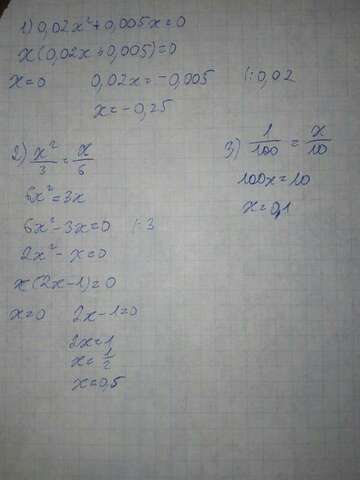 1) 0,02x² + 0,005x = 0
x(0,02x + 0,005) = 0
x = 0    0,02x = -0,005    |:0,02
x = -0,25
2) x²/3 = x/6
6x² = 3x
6x² - 3x = 0    |:3
2x² - x = 0
x(2x - 1) = 0
x = 0    2x - 1 = 0
2x = 1
x = 1/2
x = 0,5
3) 1/100 = x/10
100x = 10
x = 0,1